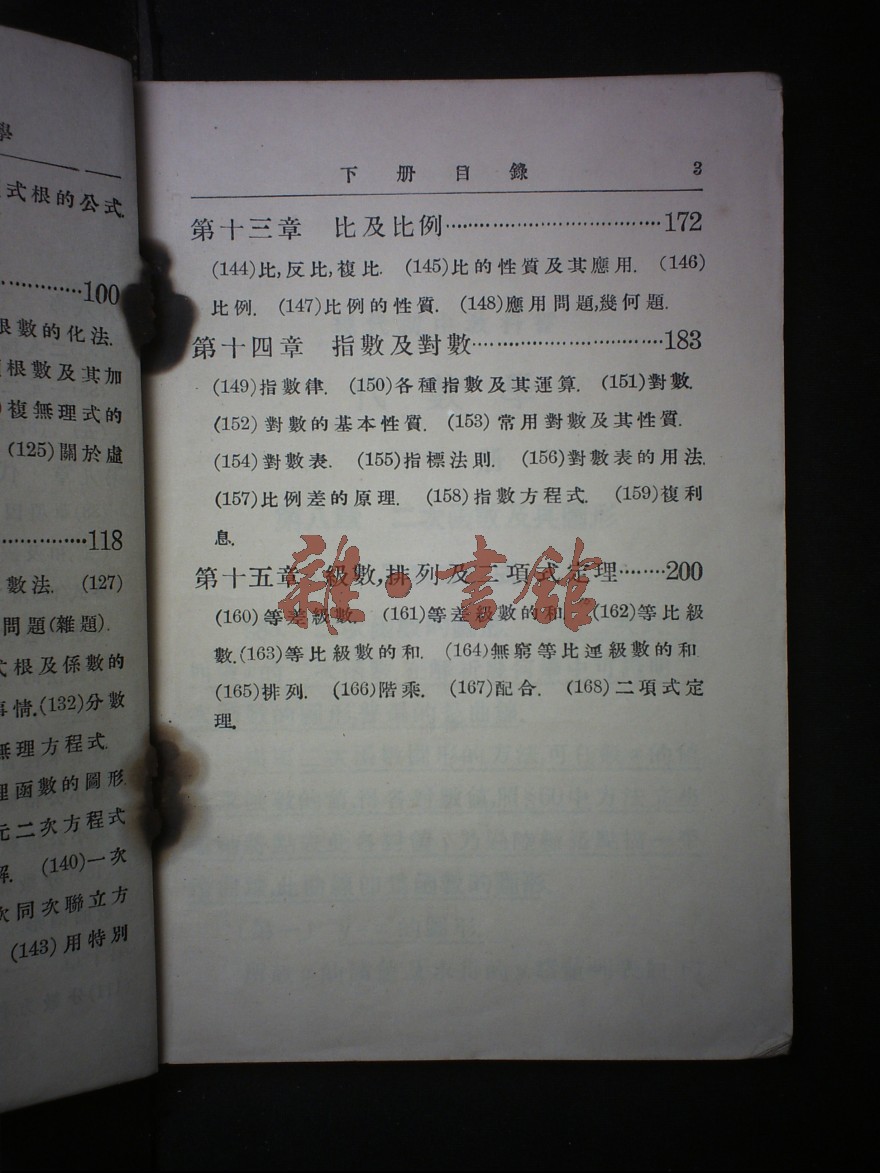 學
式根的公式.
100
根數的化法.
根數及其加
複無理式的
(125)關於虛
118
數法. (127)
問題(雜題).
式根及係數的
事情.(132)分數
無理方程式.
理函數的圖形.
元二次方程式
解. (140)一次
次同次聯立方
(143)用特別
下册目錄 3
第十三章 比及比例……………………………172
(144)比,反比,複比. (145)比的性質及其應用. (146)
比例. (147)比例的性質. (148)應用問題,幾何題.
第十四章 指數及對數…………………………183
(149)指數律. (150)各種指數及其運算. (151)對數.
(152)對數的基本性質. (153)常用對數及其性質.
(154)對數表. (155)指標法則. (156)對數表的用法.
(157)比例差的原理. (158)指數方程式. (159)複利
息.
第十五章 級數,排列及二項式定理……200
(160)等差級數. (161)等差級數的和. (162)等比級
數.(163)等比級數的和. (164)無窮等比逕級數的和.
(165)排列. (166)階乘. (167)配合. (168)二項式定
理.
雜·書館